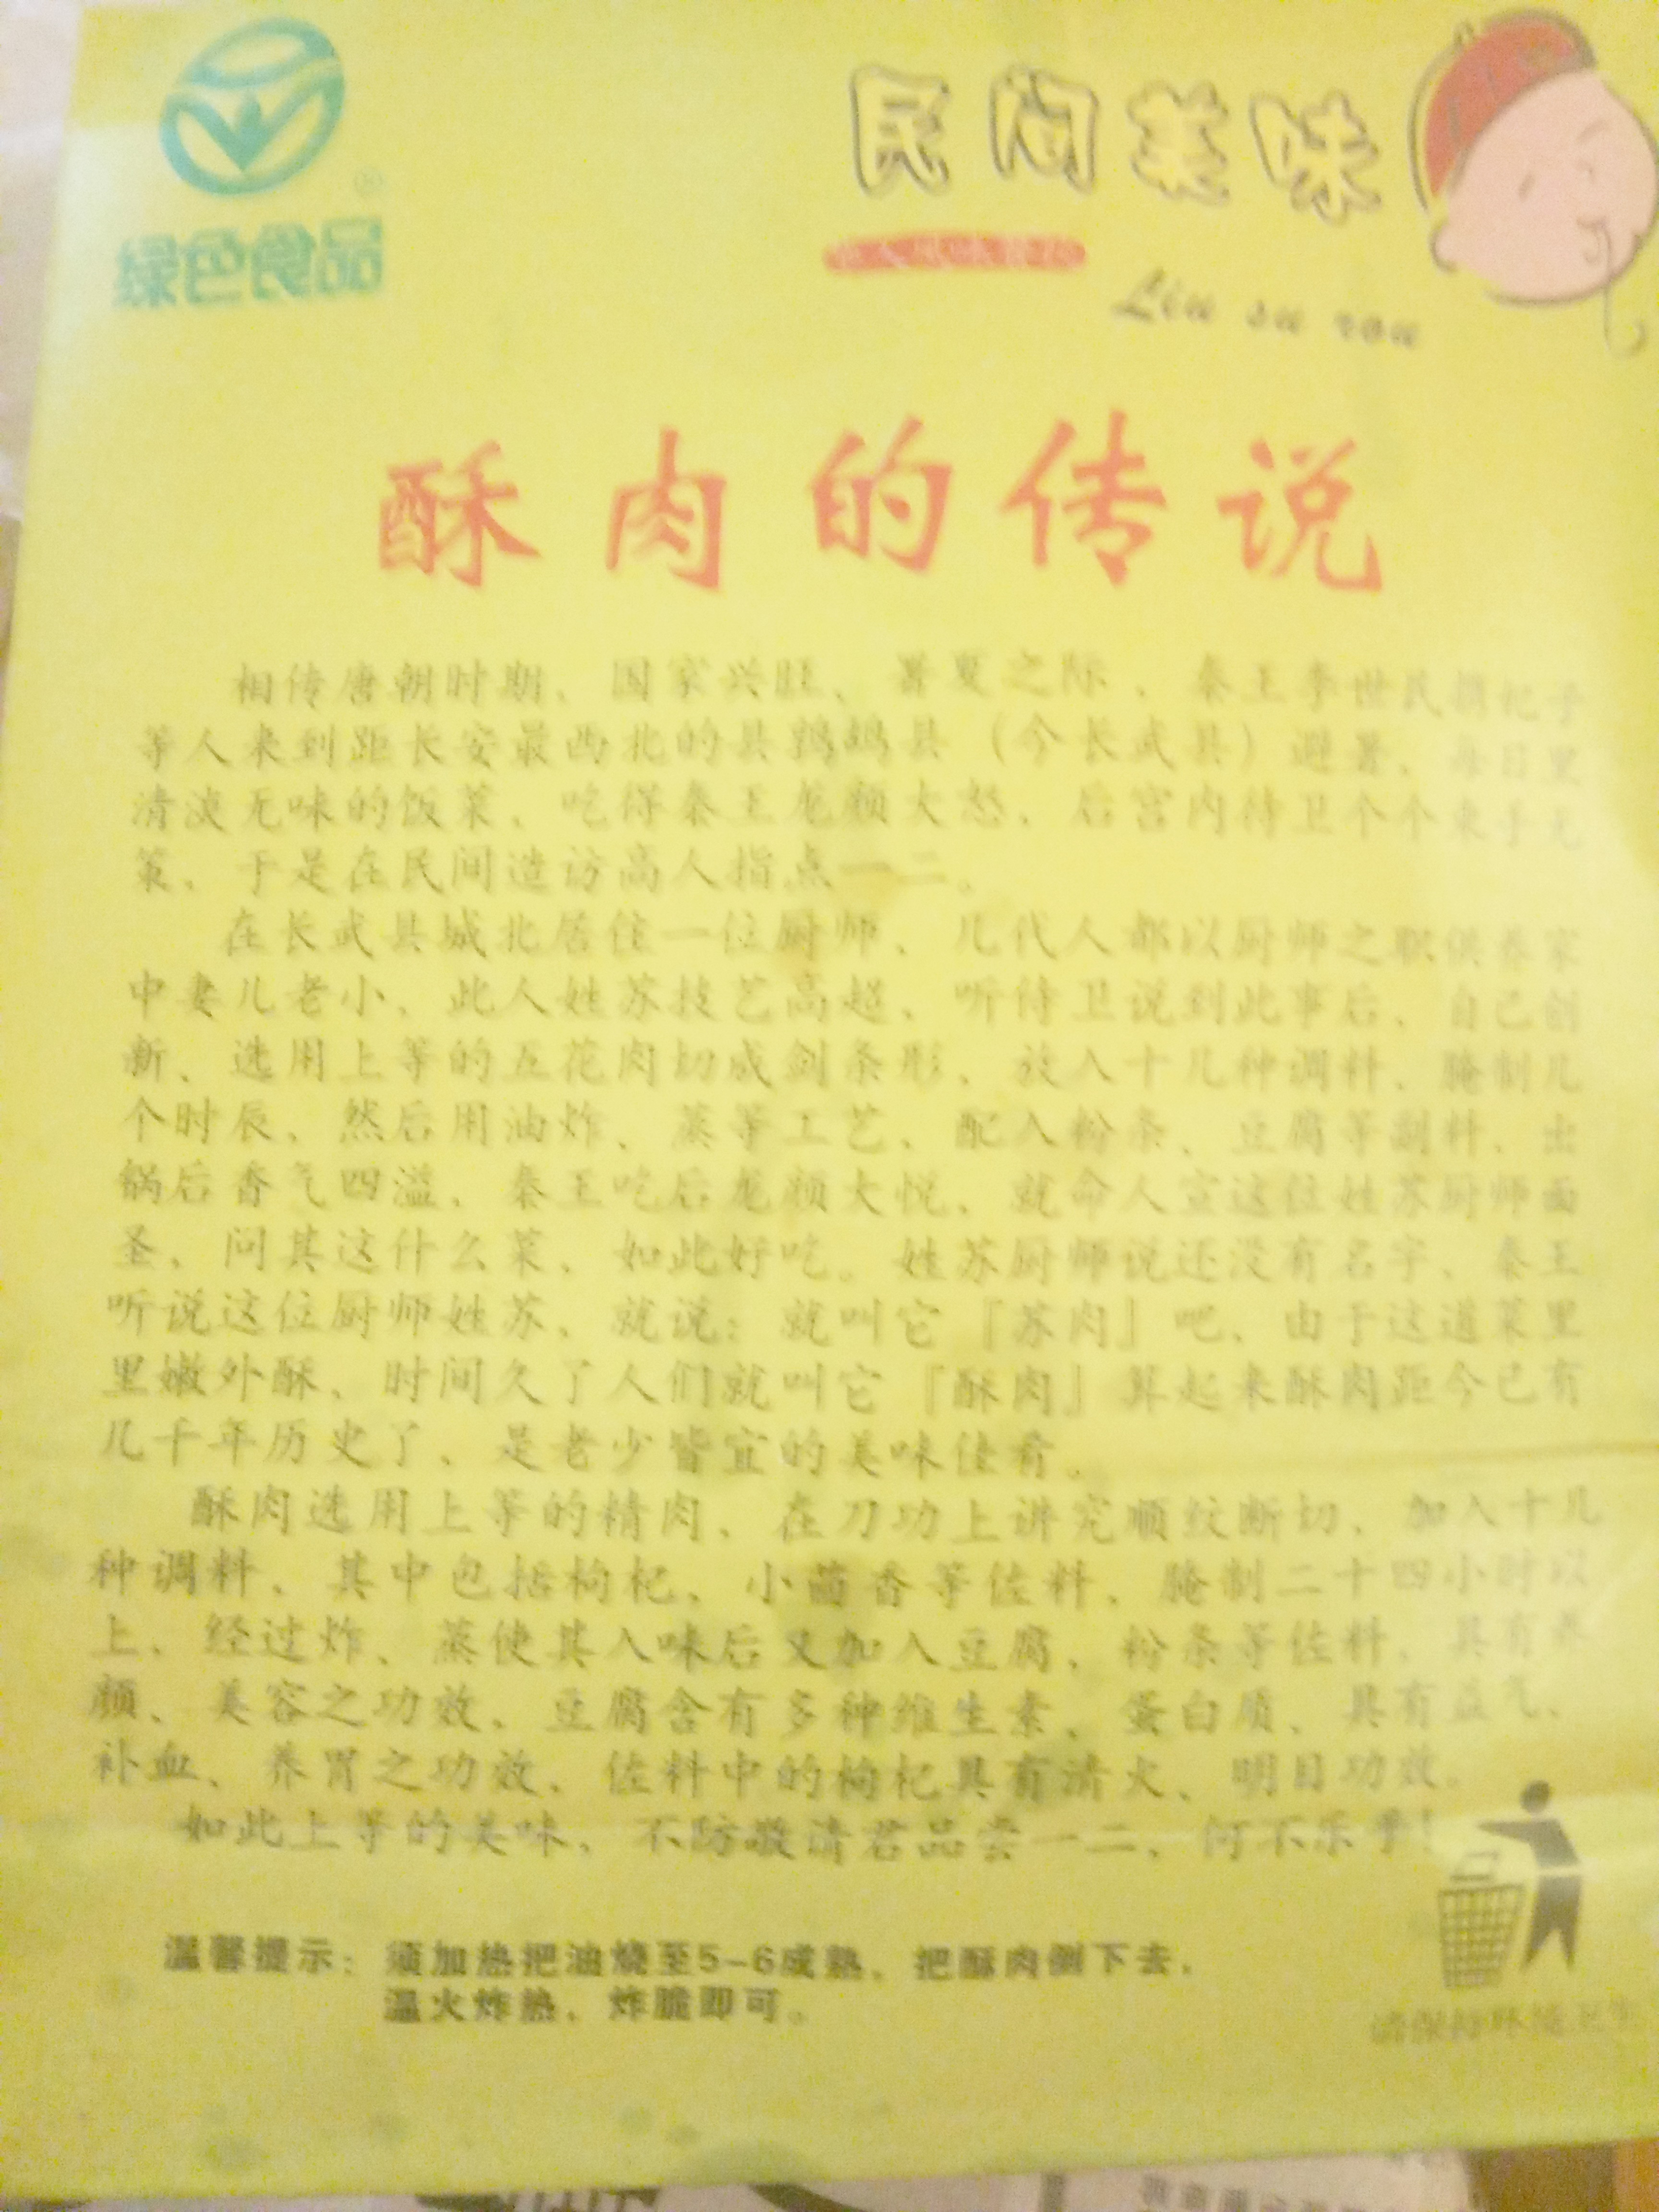 绿色食品
民间美味
Liu su rou
酥肉的传说
相传唐朝时期，国家兴旺，暑夏之际，秦王李世民携妃子
等人来到距长安最西北的县鹑觚县（今长武县）避暑，每日里
清淡无味的饭菜，吃得秦王龙颜大怒，后宫内待卫个个束手无
策，于是在民间造访高人指点一二。
在长武县城北居住一位厨师，几代人都以厨师之职供养家
中妻儿老小，此人姓苏技艺高超，听待卫说到此事后，自己创
新，选用上等的五花肉切成剑条形，放入十几种调料，腌制几
个时辰，然后用油炸、蒸等工艺，配入粉条、豆腐等副料，出
锅后香气四溢，秦王吃后龙颜大悦，就命人宣这位姓苏厨师面
圣，问其这什么菜，如此好吃。姓苏厨师说还没有名字，秦王
听说这位厨师姓苏，就说：就叫它『苏肉』吧，由于这道菜里
里嫩外酥，时间久了人们就叫它『酥肉』算起来酥肉距今已有
几千年历史了，是老少皆宜的美味佳肴。
酥肉选用上等的精肉，在刀功上讲究顺纹断切，加入十几
种调料，其中包括枸杞，小茴香等佐料，腌制二十四小时以
上，经过炸、蒸使其入味后又加入豆腐，粉条等佐料，具有养
颜、美容之功效，豆腐含有多种维生素、蛋白质，具有益气、
补血、养胃之功效，佐料中的枸杞具有清火、明目功效。
如此上等的美味，不防敬请君品尝一二，何不乐乎！
温馨提示：须加热把油烧至5-6成熟，把酥肉倒下去，
温火炸热，炸脆即可。
请保持环境卫生